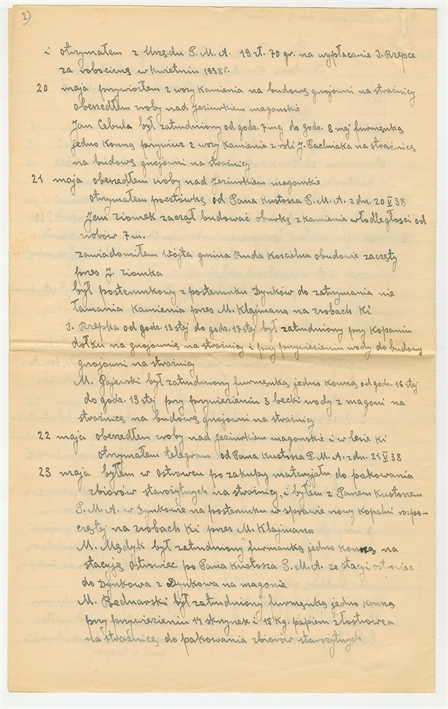 2)
i otrzymałem z Urzędu P. M. A. 19 zł. 70 gr. na wypłacenie J. Rzepce
za robociznę w kwietniu 1938 r.
20 maja przywiozłem 2 wozy kamienia na budowę gnojowni na strażnicy
obszedłem zroby nad jeziurkiem magonskie
Jan Cebula był zatudniony od godz. 7 mej do godz. 8 mej furmenką
jedno konną przywiuz 2 wozy kamienia z roli J. Paclniaka na strażnicę
na budowę gnojowni na strażnicy
21 maja obszedłem zroby nad jeziurkiem magonskie
otrzymałem pocztówkę od Pana Kustosza P. M. A. z dn. 20 V 38
Jeni Zionek zaczął budować oburkę z kamienia w odległości od
zrobów 7 m.
zawiadomiłem Wójta gmina Ruda Kościelna o budowie zaczęty
przes J. Zionka
był posterunkowy z posterunku Dynków do zatrzymania nie
łamania kamienia przes M. Klajmana na zrobach Ki
J. Rzepka od godz. 13 stej do godz. 17 stej był zatudniony przy kopaniu
dołku na gnojownię na strażnicy i przy przywiezieniu wody do budowy
gnojowni na strażnicy
M. Gajewski był zatudniony furmenką jedno konną od godz. 16 stej
do godz. 19 stej przy przywiezieniu 3 becki wody z magoni na
strażnicę na budowę gnojowni na strażnicy
22 maja obszedłem zroby nad jeziurkiem magonskie i w lesie Ki
otrzymałem telegram od Pana Kustosza P. M. A. z dn. 21 V 38
23 maja byłem w Ostrowcu po zakupy materyjału do pakowania
zbiorów starożytnych na strażnicy, i byłem z Panem Kustoszem
P. M. A. w Dynkowie na posterunku w sprawie nowy kopalni rozpo-
częty na zrobach Ki przes M. Klajmana
M. Mądyk był zatudniony furmanką jedno konną na
stacyję Ostrowiec po Pana Kustosza P. M. A. ze stacyi Ostrowiec
do Dynkowa z Dynkowa na magonie
M. Bednarski był zatudniony furmenką jedno konną
przy przywiezieniu 14 skrzynek i 15 Kg. papieru z Ostrowca
na strażnicę do pakowania zbiorów starożytnych